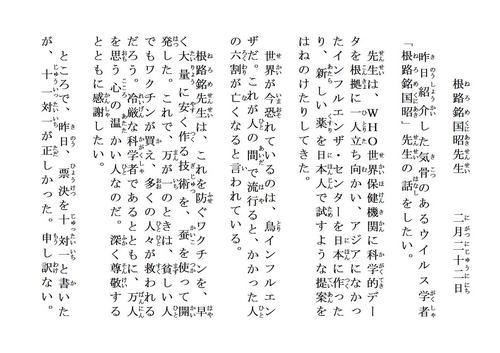 根路銘国昭先生　二月二十二日
昨日紹介した気骨のあるウイルス学者
「根路銘国昭」先生の話をしたい。
先生は、ＷＨＯ世界保健機関に科学的デー
タを根拠に一人立ち向かい、アジアになかっ
たインフルエンザ・センターを日本に作った
り、新しい薬を日本人で試すような提案を
はねのけたりしてきた。
世界が今恐れているのは、鳥インフルエン
ザだ。これが人の間で流行ると、かかった人
の六割が亡くなると言われている。
根路銘先生は、これを防ぐワクチンを、早
く大量に安く作る技術を、蚕を使って開
発した。これで、万が一のときは、貧しい人
でもワクチンが買え、多くの人々が救われる
だろう。冷厳な科学者であるとともに、万人
を思う心の温かい人なのだ。深く尊敬する
とともに感謝したい。
ところで、昨日、票決を十対一と書いた
が、十一対一が正しかった。申し訳ない。